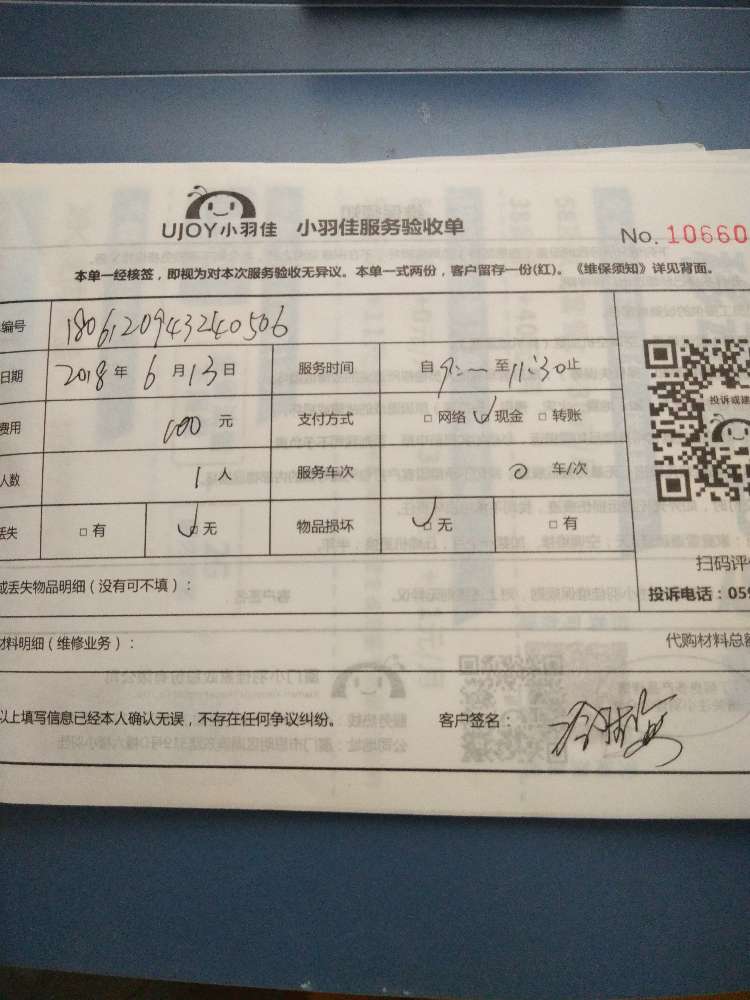 UJOY小羽佳 小羽佳服务验收单
No. 10660
本单一经核签，即视为对本次服务验收无异议。本单一式两份，客户留存一份(红)。《维保须知》详见背面。
编号 1806120943240506
日期 2018年6月13日 服务时间 自9:一至11:30止
费用 100元 支付方式 □网络 ☑现金 □转账
投诉或建
人数 1人 服务车次 0车/次
丢失 □有 ☑无 物品损坏 ☑无 □有
扫码评
或丢失物品明细（没有可不填）：
投诉电话：059
材料明细（维修业务）：
代购材料总额
以上填写信息已经本人确认无误，不存在任何争议纠纷。 客户签名：